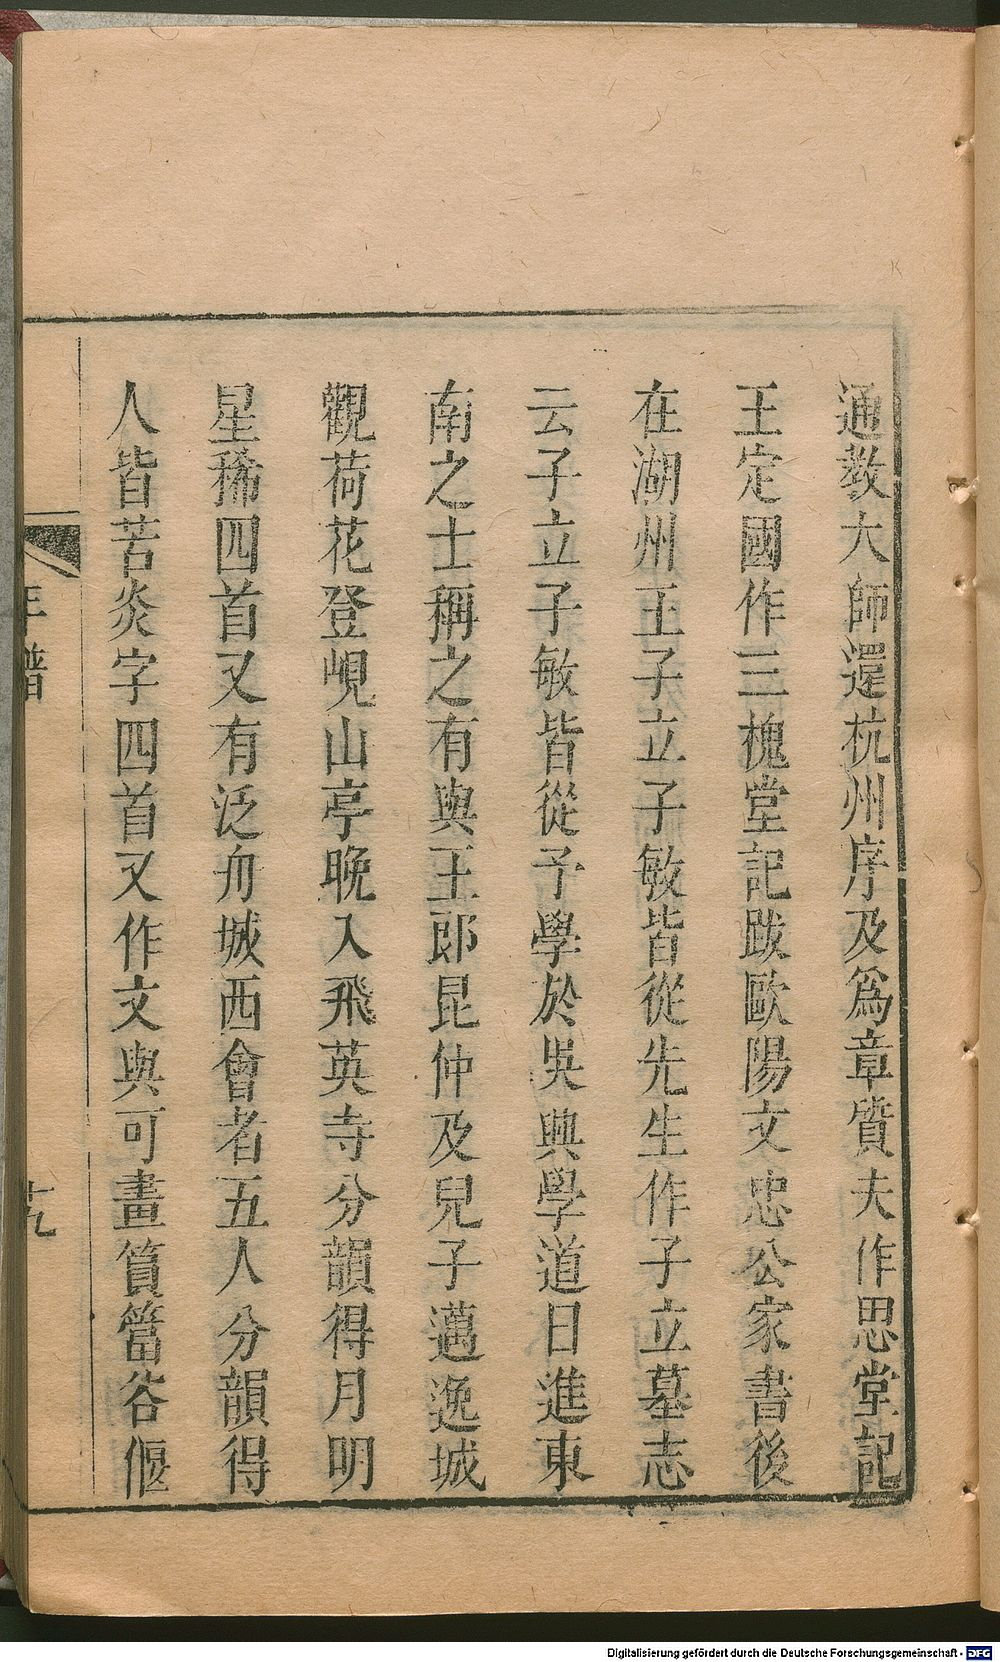 通教大師還杭州序及爲章質夫作思堂記
王定國作三槐堂記跋歐陽文忠公家書後
在湖州王子立子敏皆從先生作子立墓志
云子立子敏皆從予學於吳興學道日進東
南之士稱之有與王郎昆仲及兒子邁遶城
觀荷花登峴山亭晚入飛英寺分韻得月明
星稀四首又有泛舟城西會者五人分韻得
人皆苦炎字四首又作文與可畫篔簹谷偃
年譜
十九
Digitalisierung gefördert durch die Deutsche Forschungsgemeinschaft - DFG